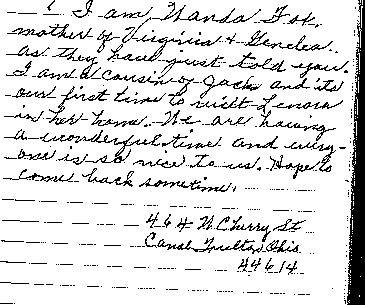 I am Wanda Fok,
mother of Virginia & Genelea.
as they have just told you.
I am a cousin of Jack and its
our first time to visit Lenora
in her home. We are having
a wonderful time and every-
one is so nice to us. Hope to
come back sometime.
464 N. Cherry St
Canal Fulton, Ohio
44614